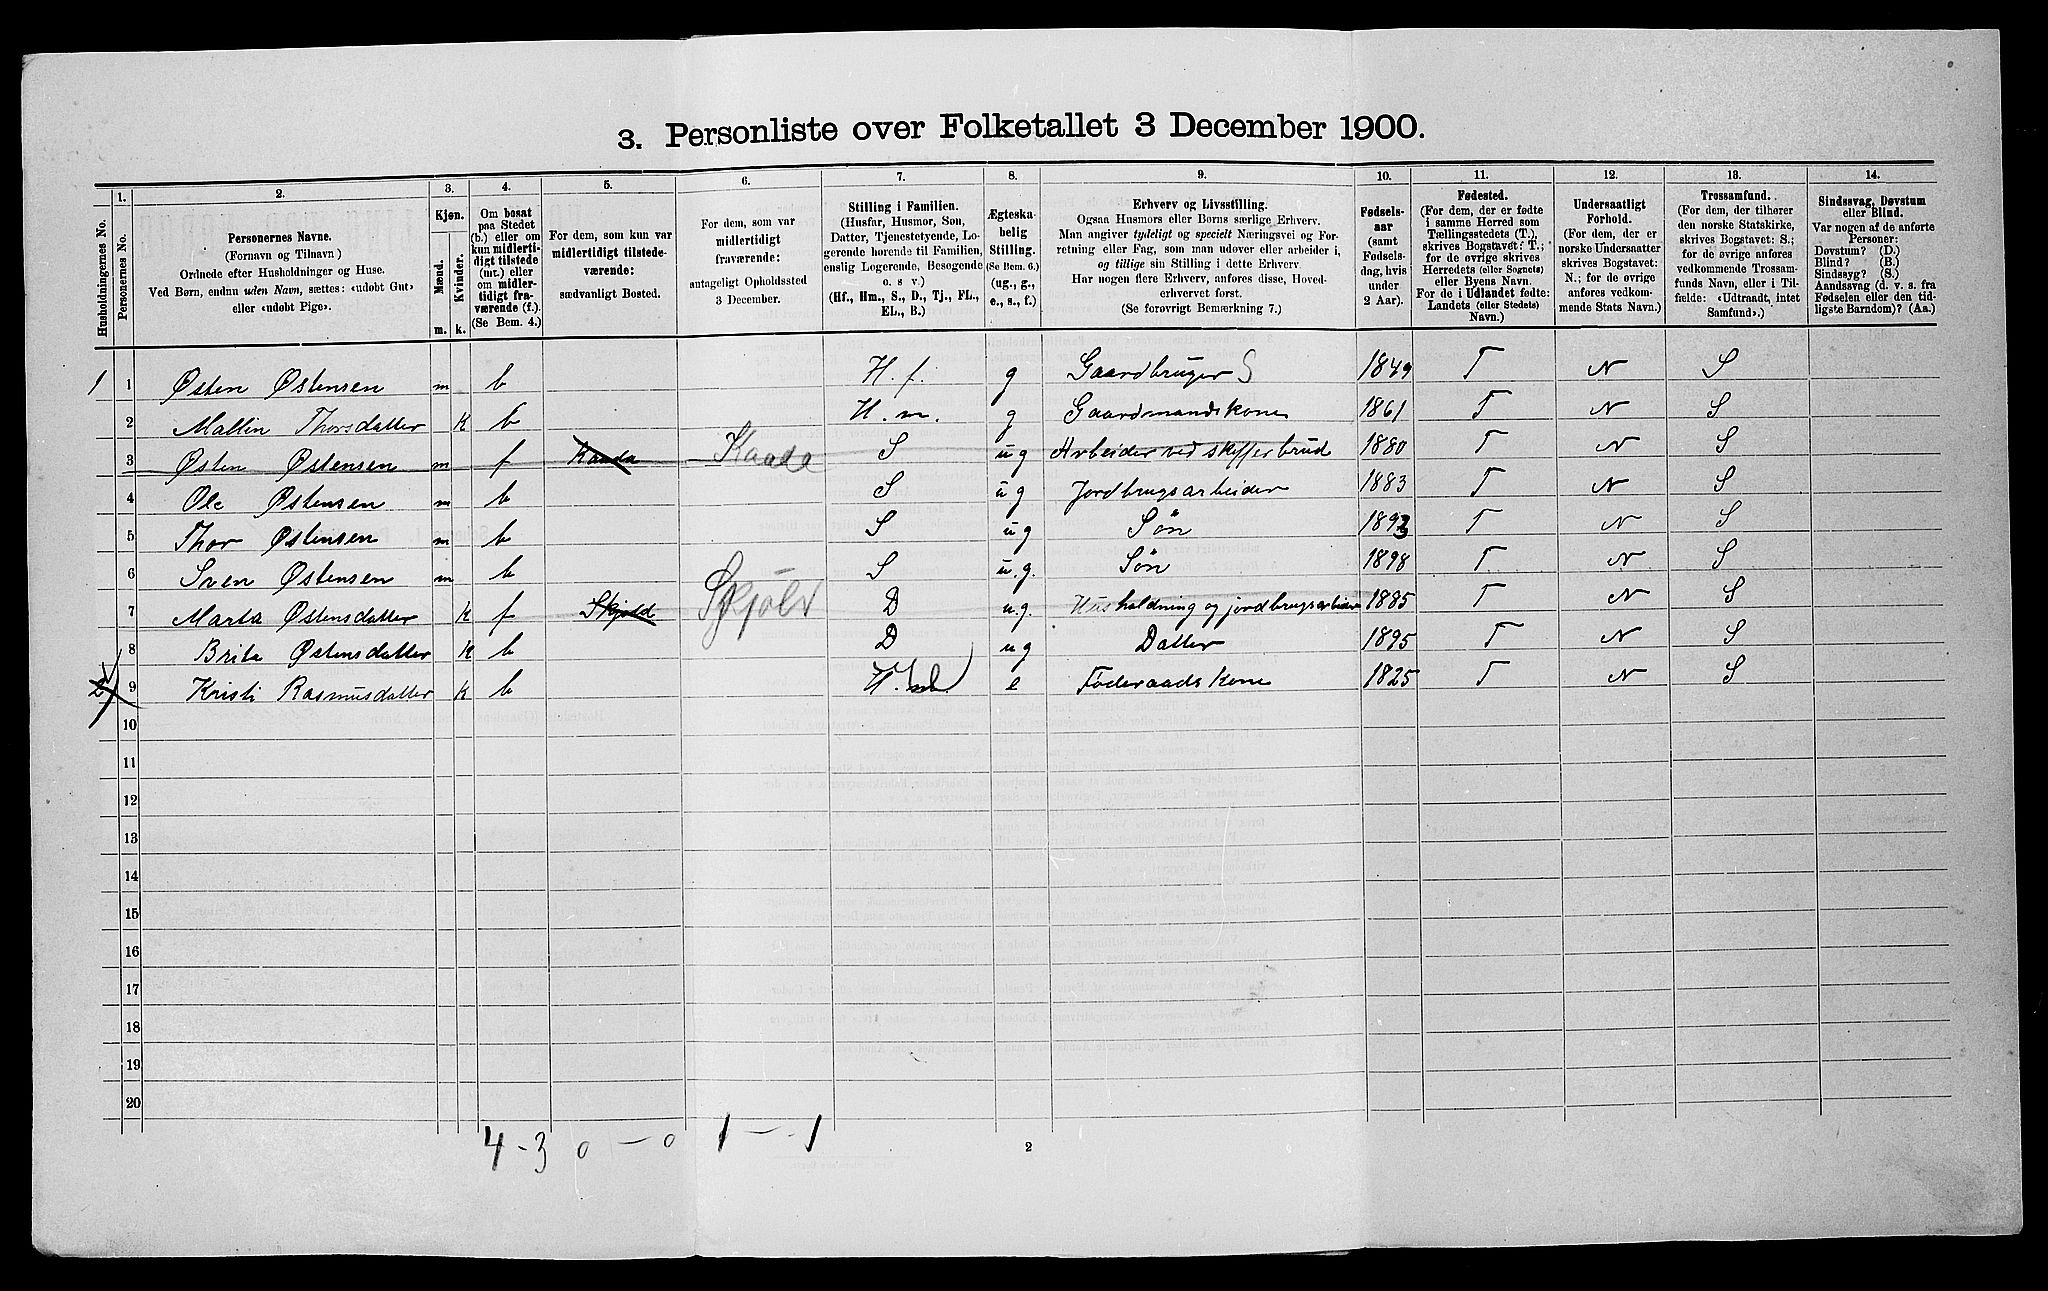 3. Personliste over Folketallet 3 December 1900.
Husholdningernes No.
1. Personernes No.
2. Personernes Navne. (Fornavn og Tilnavn) Ordnede efter Husholdninger og Huse. Ved Børn, endnu uden Navn, sættes: «udøbt Gut» eller «udøbt Pige».
3. Kjøn. Mænd. m. Kvinder. k.
4. Om bosat paa Stedet (b.) eller om kun midlertidigt tilstede (mt.) eller om midlertidigt fraværende (f.). (Se Bem. 4.)
5. For dem, som kun var midlertidigt tilstedeværende: sædvanligt Bosted.
6. For dem, som var midlertidigt fraværende: antageligt Opholdssted 3 December.
7. Stilling i Familien. (Husfar, Husmor, Søn, Datter, Tjenestetyende, Logerende hørende til Familien, enslig Logerende, Besøgende o. s v.) (Hf., Hm., S., D., Tj., FL., EL., B.)
8. Ægteskabelig Stilling. (Se Bem. 6.) (ug., g., e., s., f.)
9. Erhverv og Livsstilling. Ogsaa Husmors eller Børns særlige Erhverv. Man angiver tydeligt og specielt Næringsvei og Forretning eller Fag, som man udøver eller arbeider i, og tillige sin Stilling i dette Erhverv. Har nogen flere Erhverv, anføres disse, Hovederhvervet først. (Se forøvrigt Bemærkning 7.)
10. Fødselsaar (samt Fødselsdag, hvis under 2 Aar).
11. Fødested. (For dem, der er fødte i samme Herred som Tællingsstedets (T.), skrives Bogstavet: T.; for de øvrige skrives Herredets (eller Sognets) eller Byens Navn. For de i Udlandet fødte: Landets (eller Stedets) Navn.)
12. Undersaatligt Forhold. (For dem, der er norske Undersaatter skrives Bogstavet: N.; for de øvrige anføres vedkommende Stats Navn.)
13. Trossamfund. (For dem, der tilhører den norske Statskirke, skrives Bogstavet: S.; for de øvrige anføres vedkommende Trossamfunds Navn, eller i Tilfælde: «Udtraadt, intet Samfund».)
14. Sindssvag, Døvstum eller Blind. Var nogen af de anførte Personer: Døvstum? (D.) Blind? (B.) Sindssyg? (S.) Aandssvag (d. v. s. fra Fødselen eller den tidligste Barndom)? (Aa.)
1 1 Østen Østensen m b H. f. g Gaardbruger S 1849 T N S
2 Mallin Thorsdatter K b H. m. g Gaardmandskone 1861 T N S
3 Østen Østensen m f Kaada Kaada S ug Arbeider ved skifferbrud 1880 T N S
4 Ole Østensen m b S ug Jordbrugsarbeider 1883 T N S
5 Thor Østensen m b S ug Søn 1893 T N S
6 Sven Østensen m b S u.g. Søn 1898 T. N S
7 Marta Østensdatter K f Skjold Skjold D u.g. Husholdning og jordbrugsarbeider 1885 T N S
8 Brita Østensdatter K b D ug Datter 1895 T N S
2 9 Kristi Rasmusdatter K b e Føderaadskone 1825 T N S
10
11
12
13
14
15
16
17
18
19
20
4 - 3 0 - 0 1 - 1
2